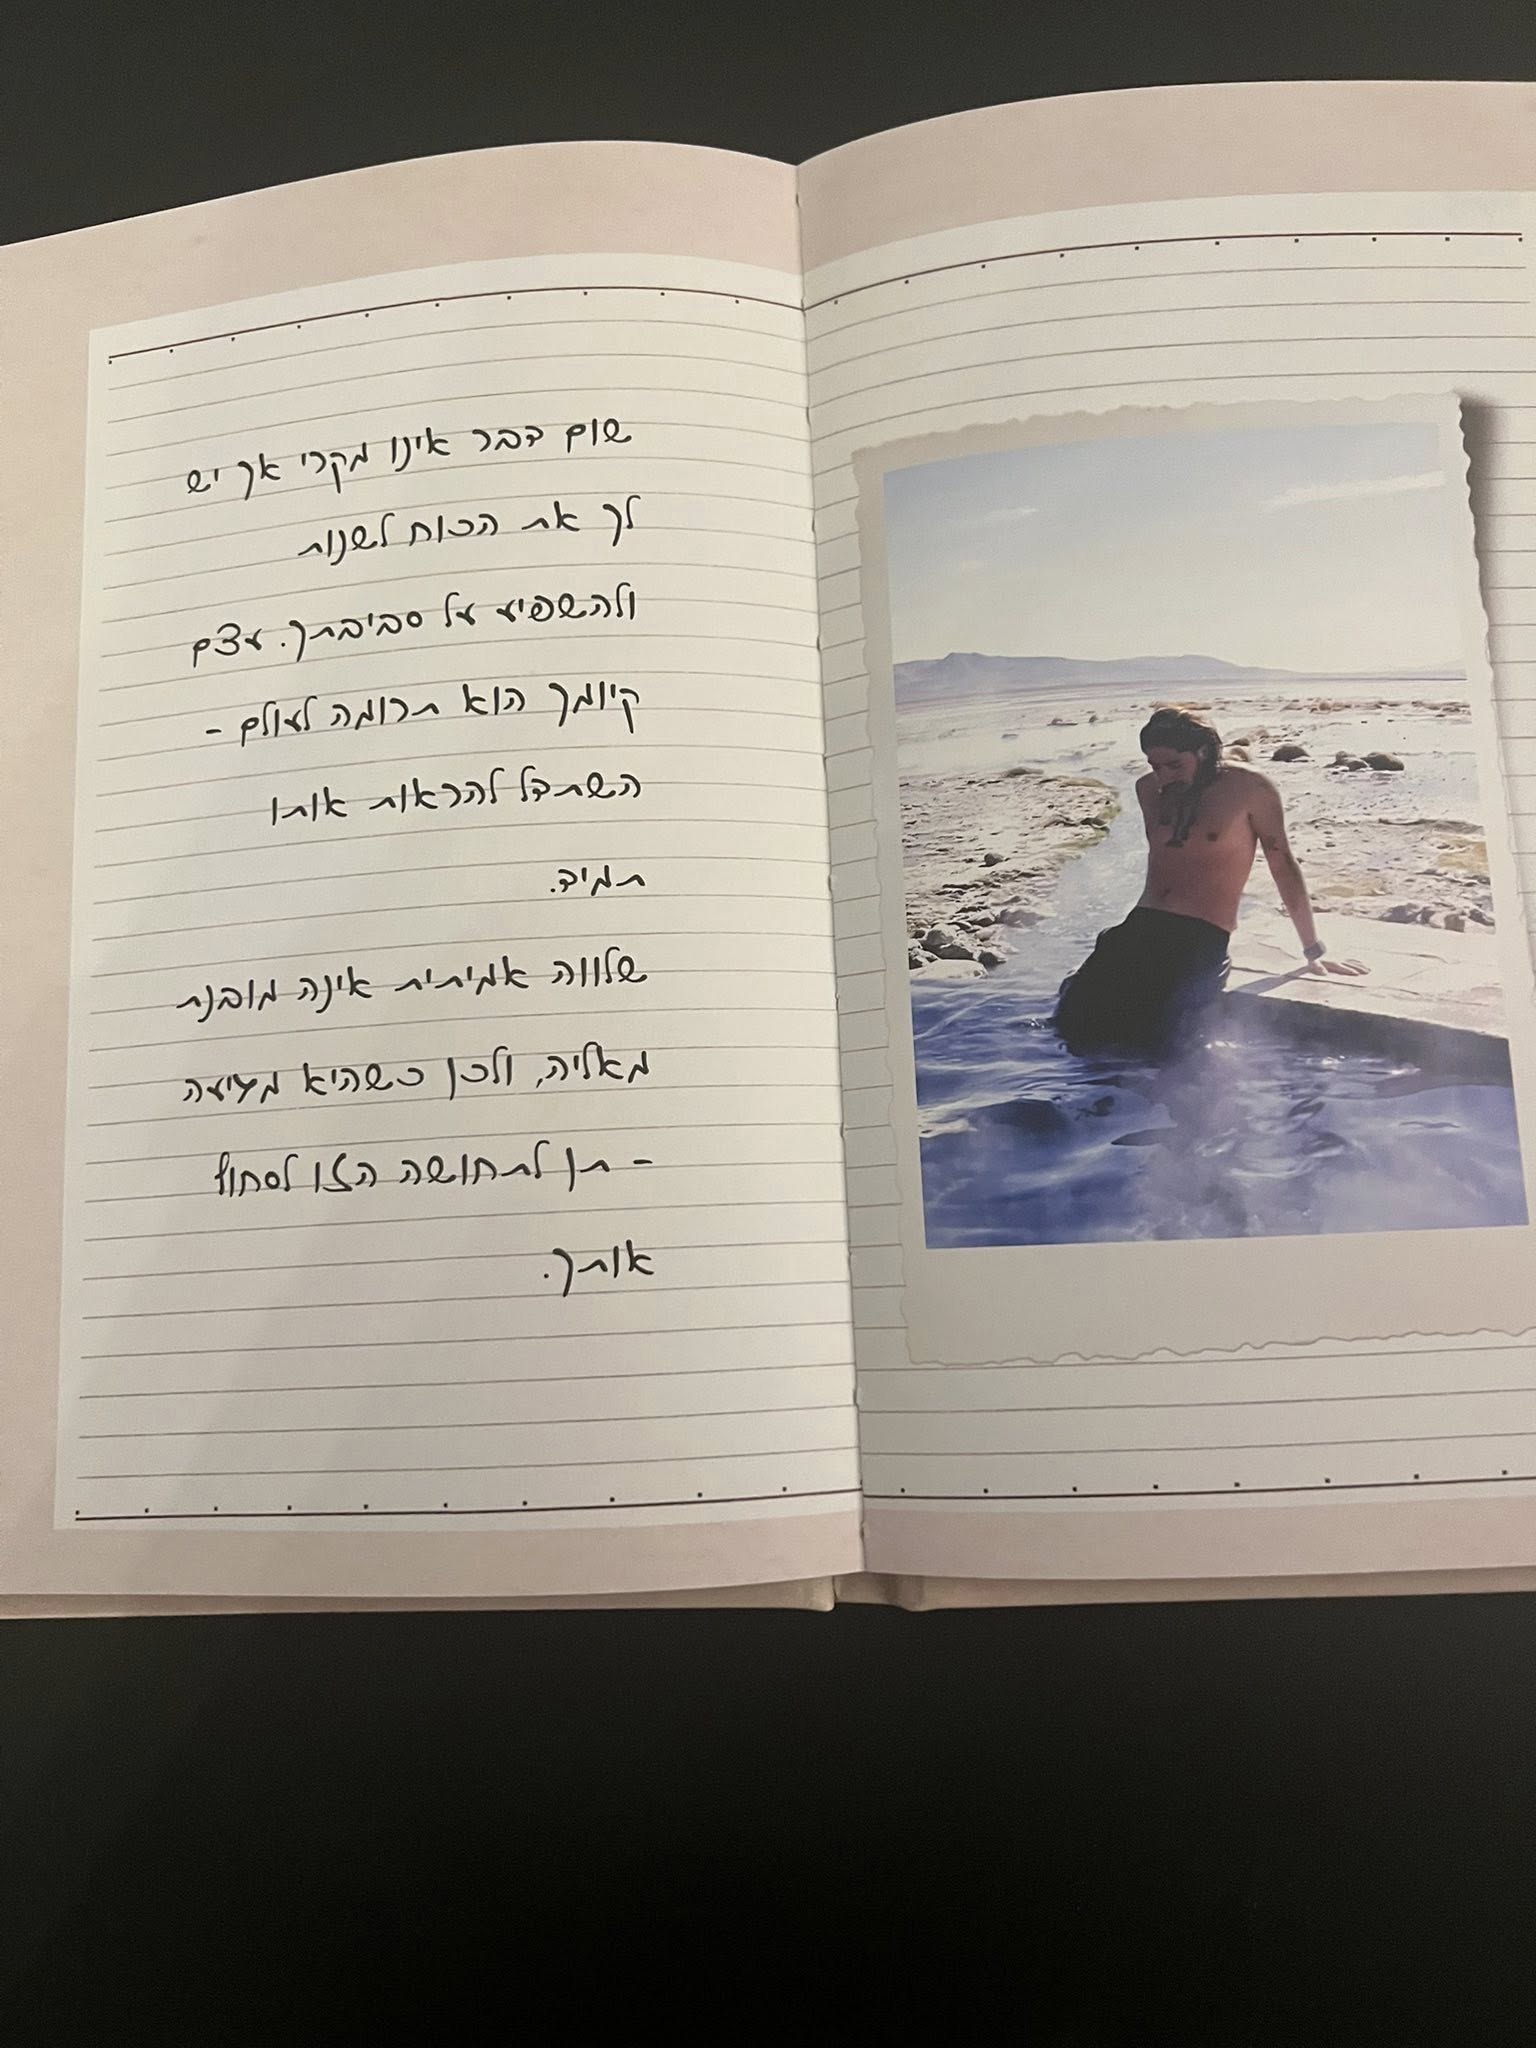 שום דבר אינו מקרי אך יש
לך את הכוח לשנות
ולהשפיע על סביבתך. עצם
קיומך הוא תרומה לעולם -
השתדל להראות אותו
תמיד.
שלווה אמיתית אינה מובנת
מאליה, ולכן כשהיא מגיעה
- תן לתחושה הזו לסחוף
אותך.